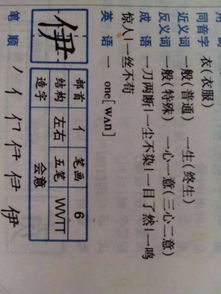 同音字 衣(衣服)
近义词 一般(普通) 一生(终生)
反义词 一般(特殊) 一心一意(三心二意)
成语 一刀两断|一尘不染|一目了然|一鸣
惊人|一丝不苟
英语 一 one[wʌn]
伊
部首 亻 笔画 6
结构 左右 五笔 WVTT
造字 会意
笔顺 丿 亻 伊